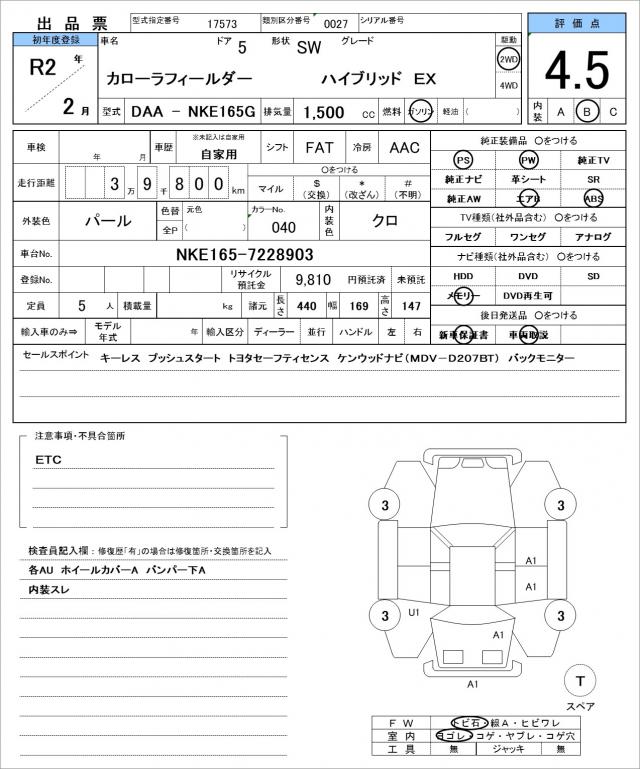 出品票 型式指定番号 17573 類別区分番号 0027 シリアル番号 評価点
初年度登録 車名 ドア 5 形状 SW グレード 駆動
R2 年 2WD 4.5
カローラフィールダー ハイブリッド EX 4WD
2 月 型式 DAA － NKE165G 排気量 1,500 cc 燃料 ガソリン 軽油 ( ) 内装 A B C
車検 年 月 車歴 ※未記入は自家用 自家用 シフト FAT 冷房 AAC 純正装備品 〇をつける
PS PW 純正TV
走行距離 3 万 9 千 8 0 0 km 〇をつける
マイル $ (交換) * (改ざん) # (不明)
純正ナビ 革シート SR
純正AW エアB ABS
外装色 パール 色替 元色 カラーNo. 040 内装色 クロ
全P ( )
TV種類(社外品含む) 〇をつける
フルセグ ワンセグ アナログ
車台No. NKE165-7228903 ナビ種類(社外品含む) 〇をつける
登録No. リサイクル預託金 9,810 円預託済 未預託 HDD DVD SD
定員 5 人 積載量 kg 諸元 長さ 440 幅 169 高さ 147 メモリー DVD再生可
後日発送品 〇をつける
輸入車のみ⇒ モデル年式 年 輸入区分 ディーラー 並行 ハンドル 左 右 新車保証書 車両取説
セールスポイント キーレス プッシュスタート トヨタセーフティセンス ケンウッドナビ(MDV－D207BT) バックモニター
注意事項・不具合箇所
ETC
検査員記入欄：修復歴｢有｣の場合は修復箇所・交換箇所を記入
各AU ホイールカバーA バンパー下A
内装スレ
3 3
A1
A1
3 U1 3
A1
A1
T
スペア
FW トビ石・線A・ヒビワレ
室内 ヨゴレ・コゲ・ヤブレ・コゲ穴
工具 無 ジャッキ 無